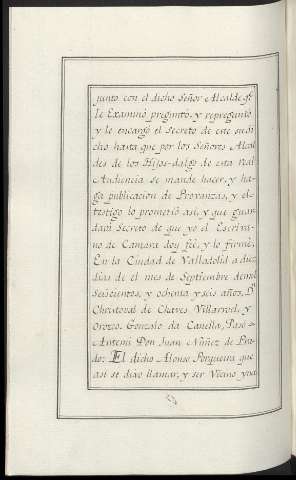 junto con el dicho Señor Alcalde qe.
le Examinó preguntó, y repreguntó
y le encargó el secreto de este su di-
cho hasta que por los Señores Alcal
des de los Hijos-dalgo de esta real
Audiencia se mande hacer, y ha-
ga publicacion de Provanzas, y el-
testigo lo prometió asi, y que guar
dará Secreto de que yo el Escriva-
no de Camara doy fé, y lo firmé,
En la Ciudad de Valladolid a diez
dias de el mes de Septiembre de mil
Seiscientos, y ochenta y seis años, Dn.
Christoval de Chaves Villarroel, y
Orozco. Gonzalo da Canella, Pasó
Antemi Don Juan Nuñez de Pra-
do: El dicho Alonso Porgueira que
asi se dixo llamar, y ser Vicino y na